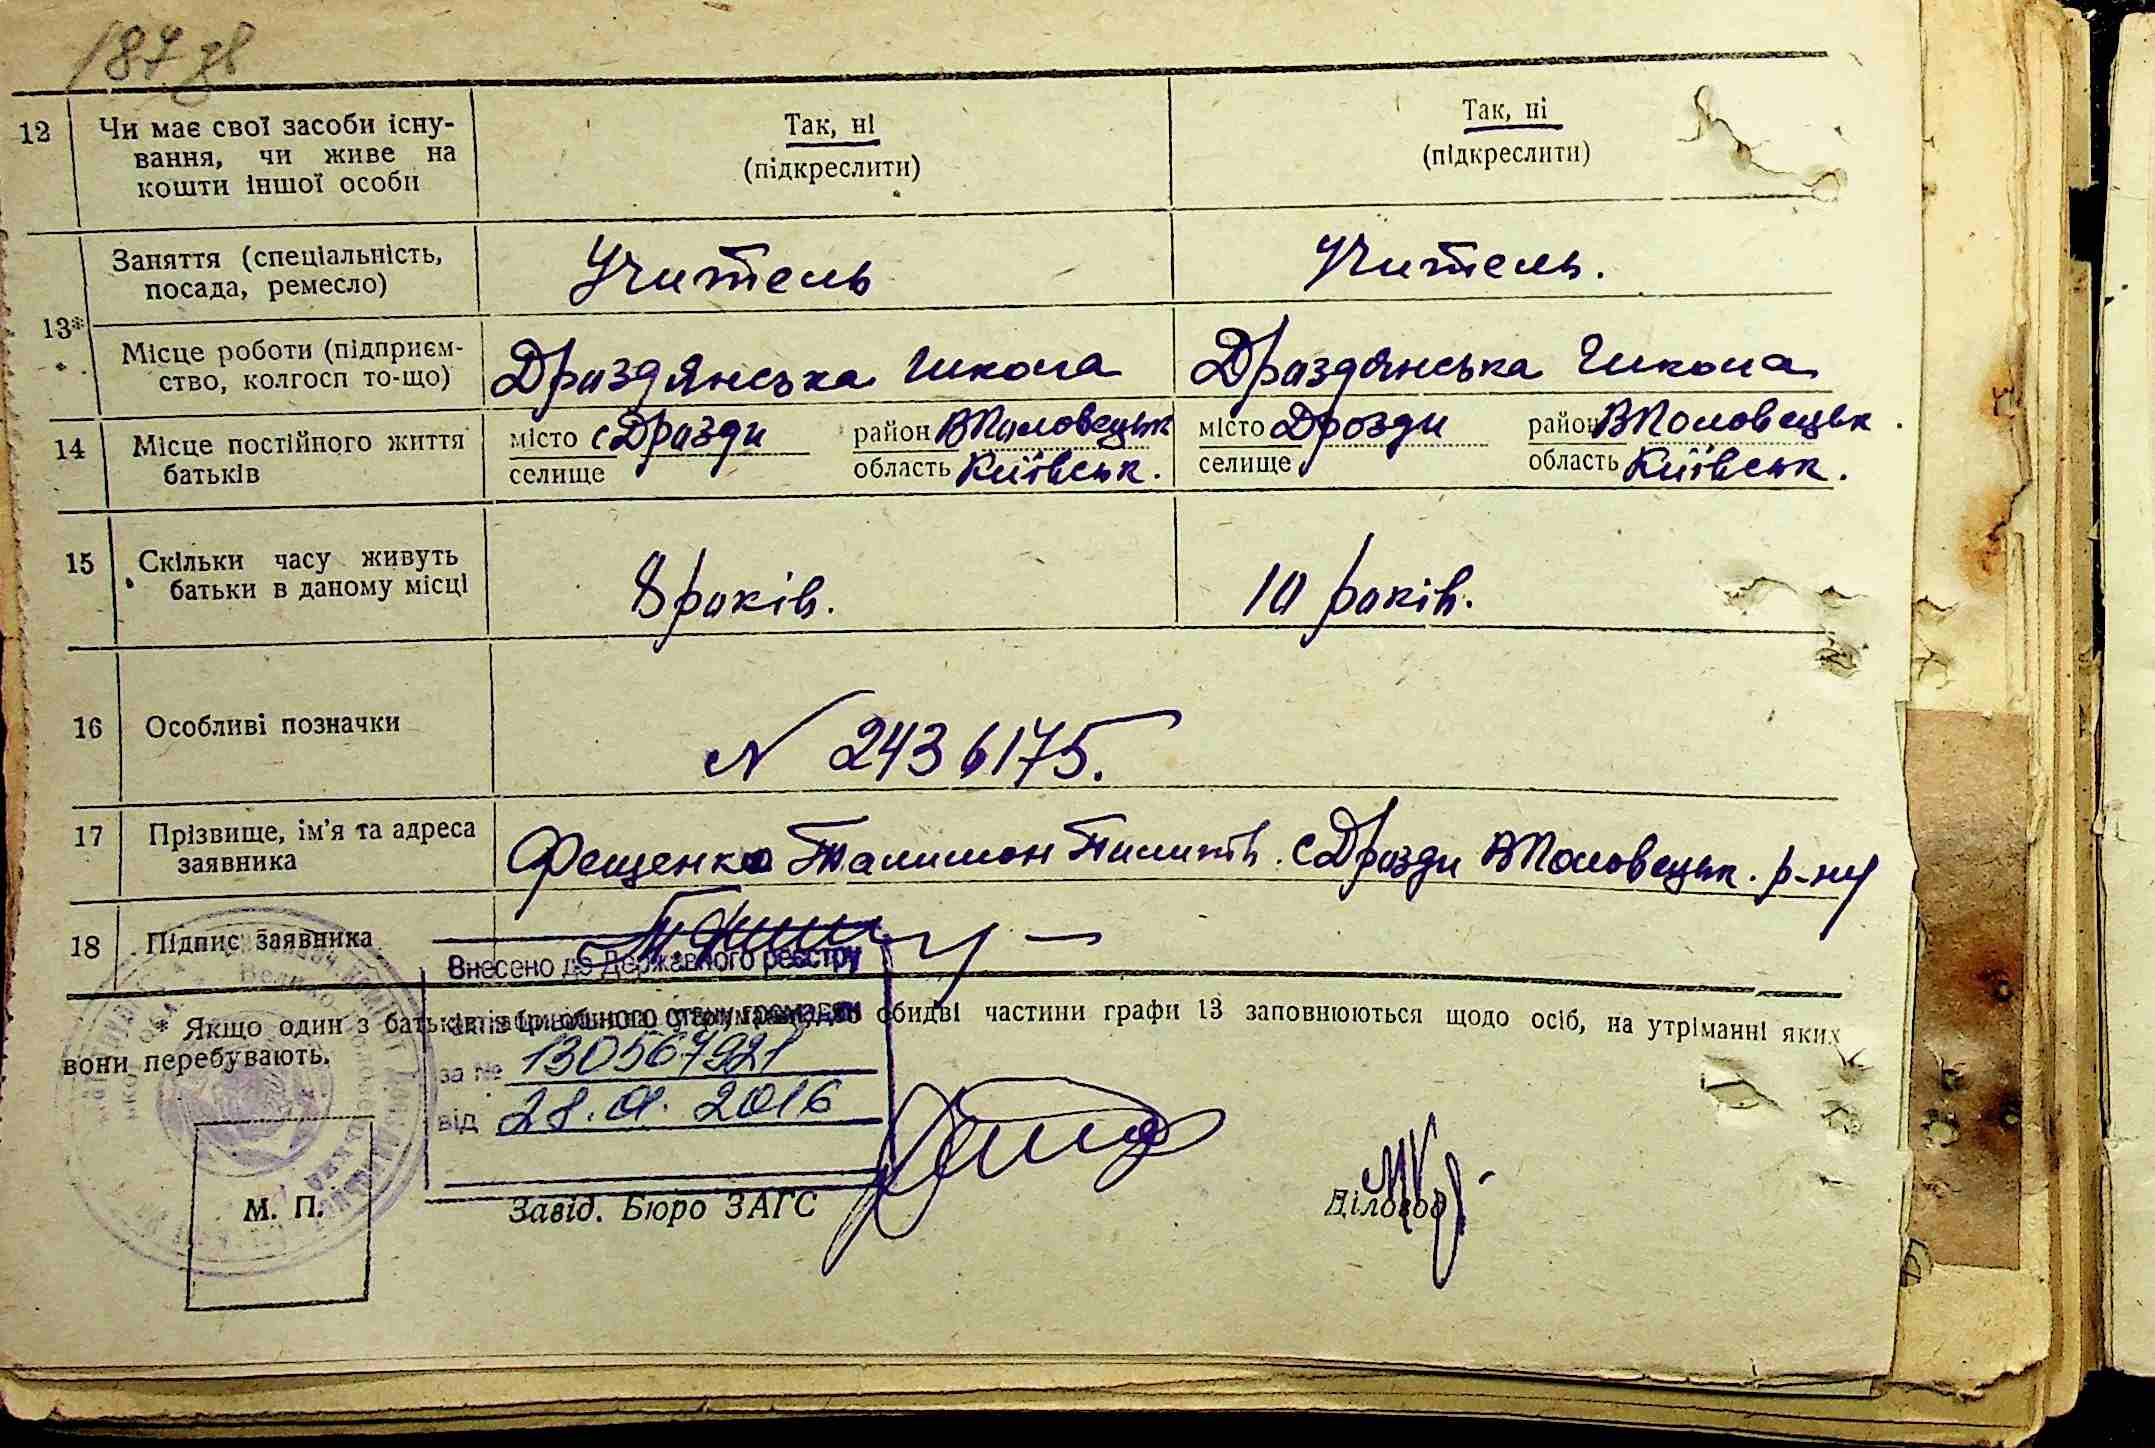 187 зв
12 Чи має свої засоби існу- Так, ні Так, ні
вання, чи живе на (підкреслити) (підкреслити)
кошти іншої особи
13* Заняття (спеціальність, Учитель Учитель.
посада, ремесло)
Місце роботи (підприєм- Дроздянська школа Дроздянська школа
ство, колгосп то-що)
14 Місце постійного життя місто с Дрозди район ВПоловецьк місто Дрозди район ВПоловецьк.
батьків селище область Київськ. селище область Київськ.
15 Скільки часу живуть 8 років. 10 років.
батьки в даному місці
16 Особливі позначки N 2436175.
17 Прізвище, ім'я та адреса Фещенко Талимон Пилипів. с Дрозди ВПоловецьк. р-ну
заявника
18 Підпис заявника
Внесено до Державного реєстру
* Якщо один з обидві частини графи 13 заповнюються щодо осіб, на утріманні яких
вони перебувають.
актів цивільного стану громадян
за № 130567921
від 28.01.2016
М. П. Завід. Бюро ЗАГС Діловод